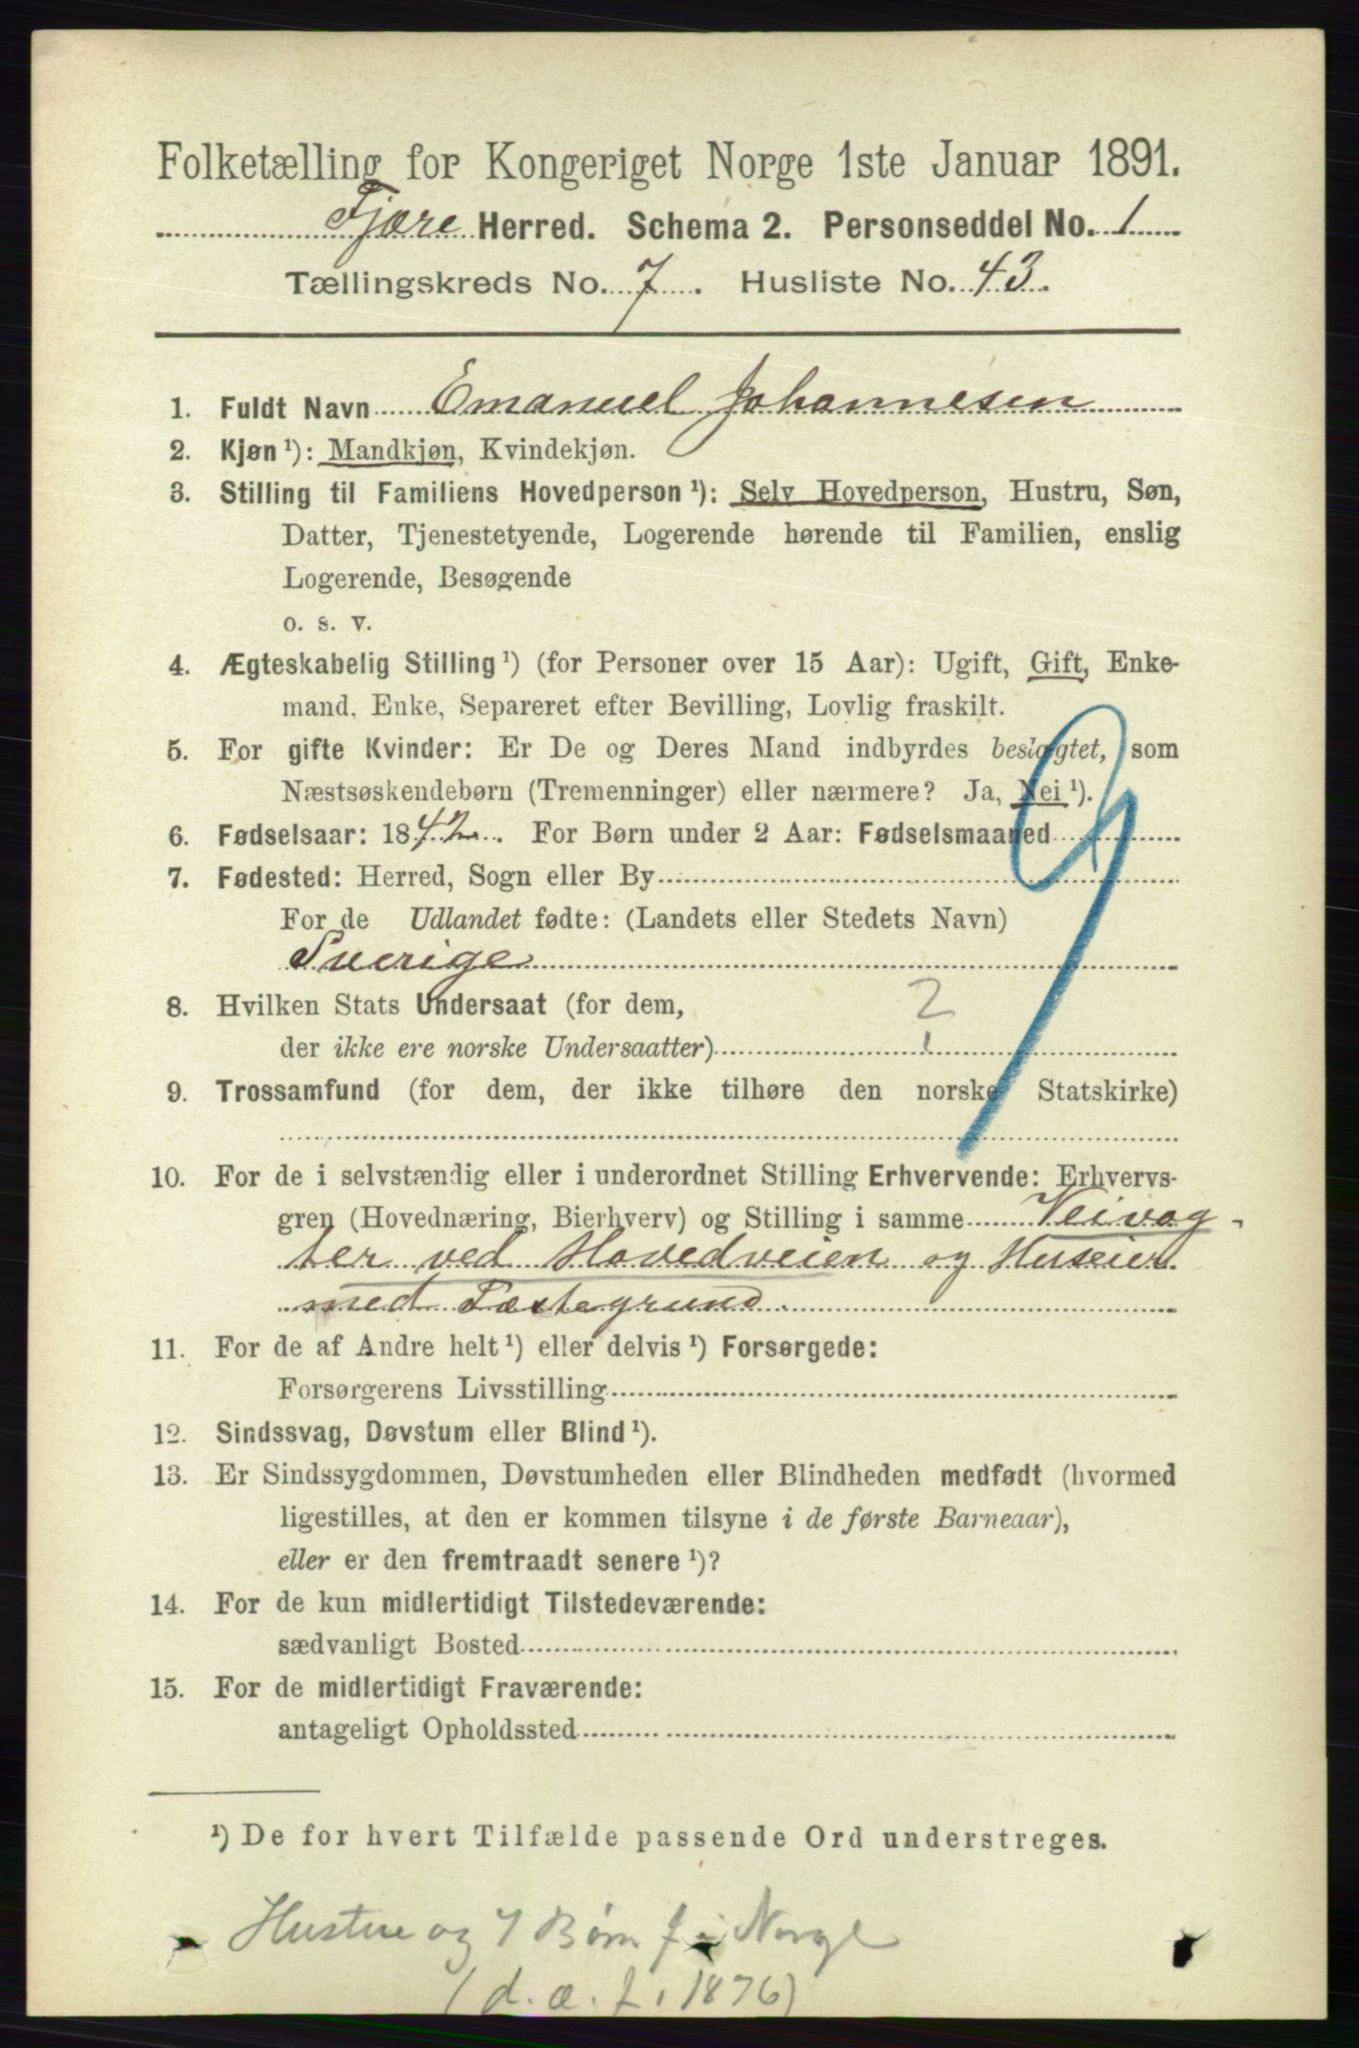 Folketælling for Kongeriget Norge 1ste Januar 1891.
Fjære Herred. Schema 2. Personseddel No. 1
Tællingskreds No. 7. Husliste No. 43.
1. Fuldt Navn Emanuel Johannesen
2. Kjøn ¹): Mandkjøn, Kvindekjøn.
3. Stilling til Familiens Hovedperson ¹): Selv Hovedperson, Hustru, Søn,
Datter, Tjenestetyende, Logerende hørende til Familien, enslig
Logerende, Besøgende
o. s. v.
4. Ægteskabelig Stilling ¹) (for Personer over 15 Aar): Ugift, Gift, Enke-
mand, Enke, Separeret efter Bevilling, Lovlig fraskilt.
5. For gifte Kvinder: Er De og Deres Mand indbyrdes beslægtet, som
Næstsøskendebørn (Tremenninger) eller nærmere? Ja, Nei ¹).
6. Fødselsaar: 1842. For Børn under 2 Aar: Fødselsmaaned
7. Fødested: Herred, Sogn eller By
For de Udlandet fødte: (Landets eller Stedets Navn)
Sverige
8. Hvilken Stats Undersaat (for dem,
der ikke ere norske Undersaatter) ?
9. Trossamfund (for dem, der ikke tilhøre den norske Statskirke)
10. For de i selvstændig eller i underordnet Stilling Erhvervende: Erhvervs-
gren (Hovednæring, Bierhverv) og Stilling i samme Veivog-
ter ved Hovedveien og Huseier
med Fæstegrund.
11. For de af Andre helt ¹) eller delvis ¹) Forsørgede:
Forsørgerens Livsstilling
12. Sindssvag, Døvstum eller Blind ¹).
13. Er Sindssygdommen, Døvstumheden eller Blindheden medfødt (hvormed
ligestilles, at den er kommen tilsyne i de første Barneaar),
eller er den fremtraadt senere ¹)?
14. For de kun midlertidigt Tilstedeværende:
sædvanligt Bosted
15. For de midlertidigt Fraværende:
antageligt Opholdssted
¹) De for hvert Tilfælde passende Ord understreges.
Hustru og 7 Børn f. i Norge
(d. æ. f. 1876)